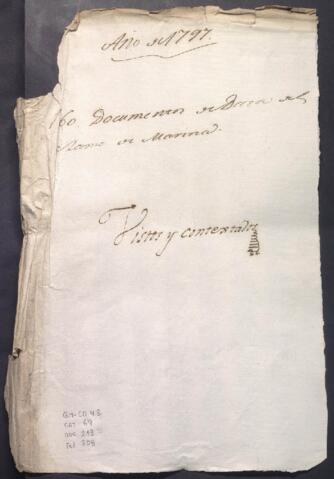 Año de 1797.
160. Documentos de Data del
Ramo de Marina.
Vistos y contextados
CAT 69
DOC 243
Fol 308